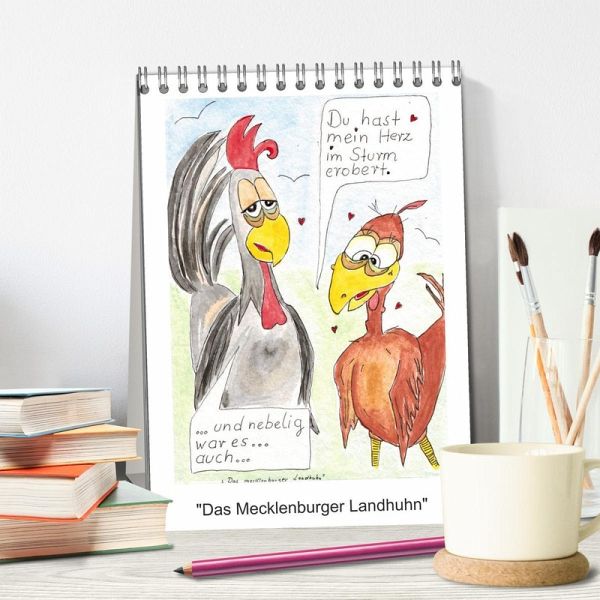 Du hast
mein Herz
im Sturm
erobert.
... und nebelig
war es...
auch...
"Das mecklenburger Landhuhn"
"Das Mecklenburger Landhuhn"